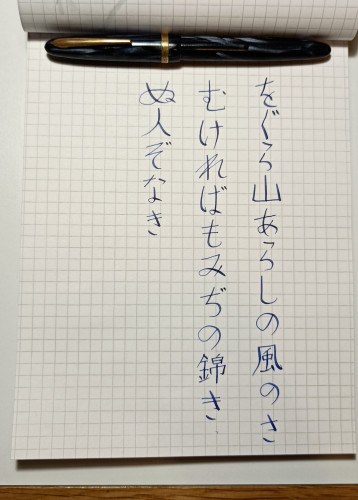 をぐら山あらしの風のさ
むければもみぢの錦き
ぬ人ぞなき